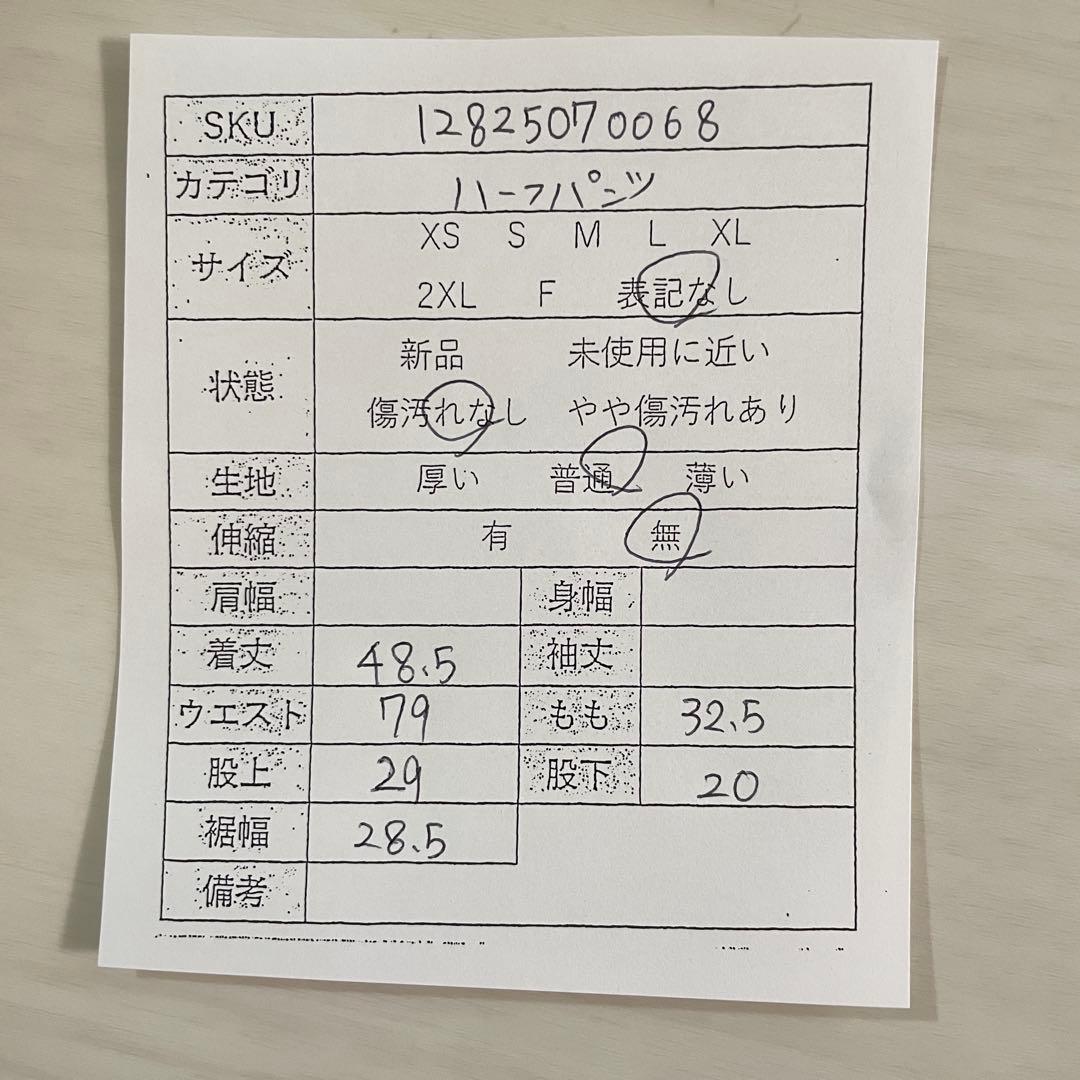 SKU 12825070068
カテゴリ ハーフパンツ
サイズ XS S M L XL
2XL F 表記なし
状態 新品 未使用に近い
傷汚れなし やや傷汚れあり
生地 厚い 普通 薄い
伸縮 有 無
肩幅 身幅
着丈 48.5 袖丈
ウエスト 79 もも 32.5
股上 29 股下 20
裾幅 28.5
備考